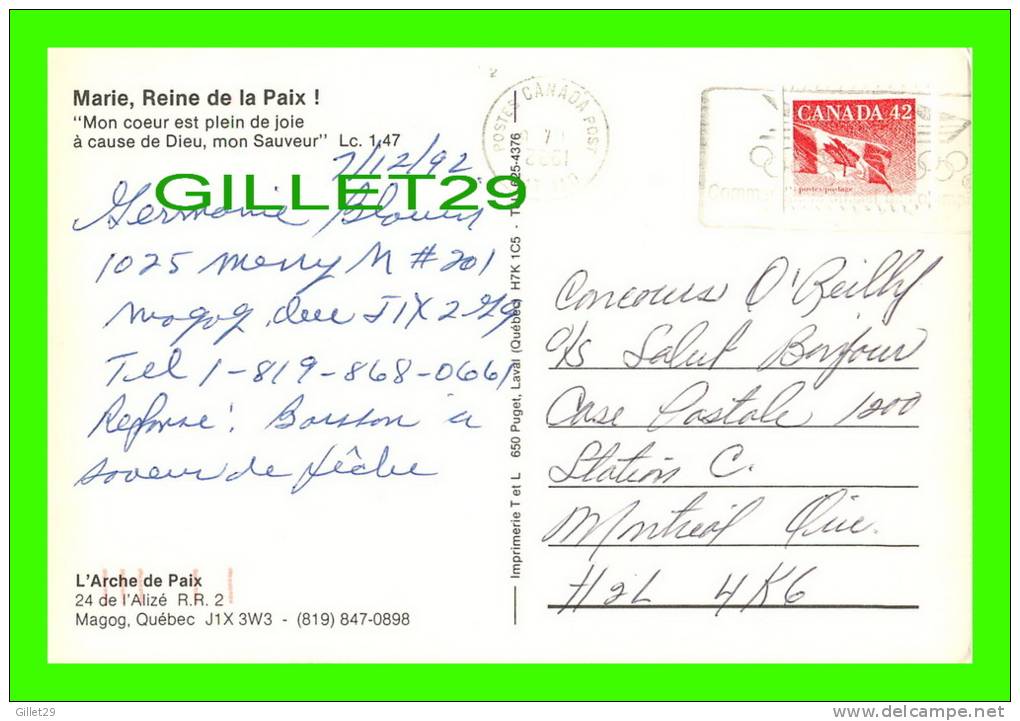 Marie, Reine de la Paix !
"Mon coeur est plein de joie
à cause de Dieu, mon Sauveur" Lc. 1,47
7/12/92
GILLET29
Germaine
1025 Merry N # 201
Magog, Que J1X 2G9
Tel 1-819-868-0661
Reponse: Boisson a
saveur de pêche
L'Arche de Paix
24 de l'Alizé R.R. 2
Magog, Québec J1X 3W3 - (819) 847-0898
Imprimerie T et L 650 Puget, Laval (Québec) H7K 1C5 - 625-4376
POSTES CANADA POST
CANADA 42
postes/postage
Concours O'Reilly
a/s Salut Bonjour
Case Postale 1200
Station C.
Montreal Que.
H2L 4K6
Gillet29
www.delcampe.net